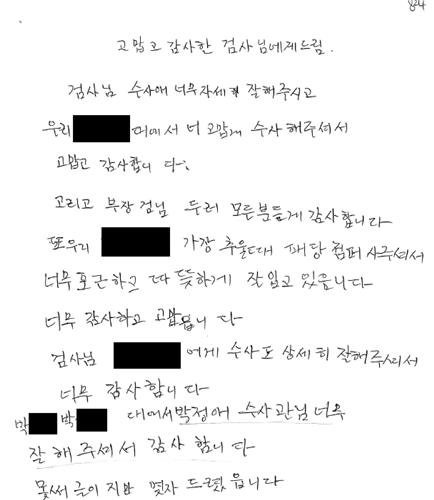 824
고맙고 감사한 검사님에게드림.
검사님 수사에 너무자세히 잘해주시고
우리 대에서 너 고맙게 수사해주셔서
고맙고 감사합니 다.
고리고 부장검님 두러 모든분들게 감사합니다
또우리 가장 추울때 패당 점퍼 사주셔서
너무포근하고 따 뜻하게 잘입고 있읍니다
너무 감사하고 고맙읍니 다
검사님 어게 수사도 상세히 잘해주시서
너무 감사합니 다
박 박 대에서박정애 수사관님너무
잘 해 주셔서 감사 합니 다
못써 글이 지만 몇자 드렸 읍니다